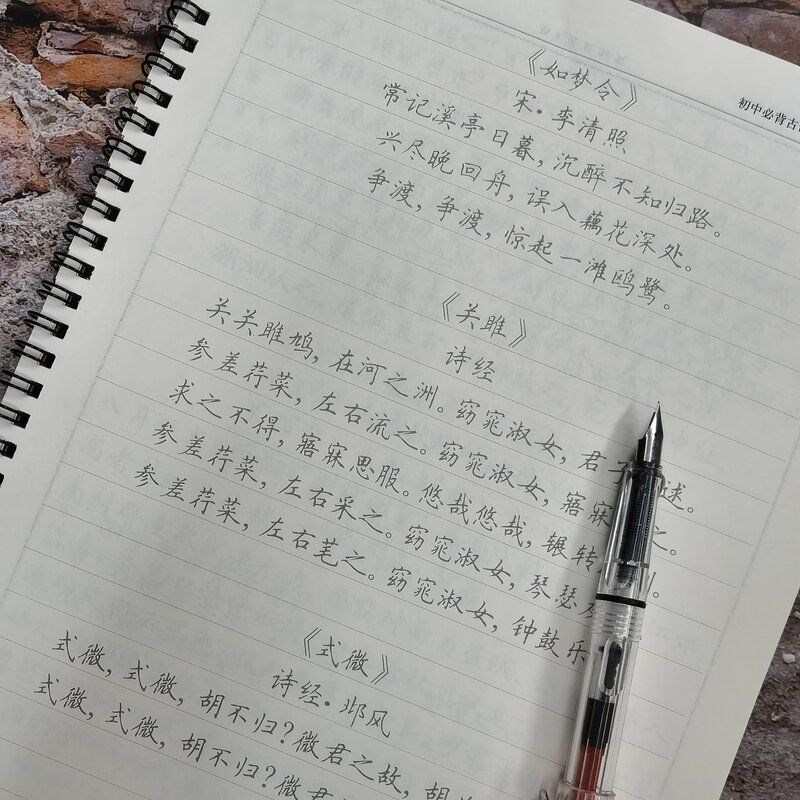 初中必背古
《如梦令》
宋·李清照
常记溪亭日暮，沉醉不知归路。
兴尽晚回舟，误入藕花深处。
争渡，争渡，惊起一滩鸥鹭。
《关雎》
诗经
关关雎鸠，在河之洲。窈窕淑女，君 逑。
参差荇菜，左右流之。窈窕淑女，寤寐 之。
求之不得，寤寐思服。悠哉悠哉，辗转
参差荇菜，左右采之。窈窕淑女，琴瑟
参差荇菜，左右芼之。窈窕淑女，钟鼓乐
《式微》
诗经·邶风
式微，式微，胡不归？微君之故，胡
式微，式微，胡不归？微君